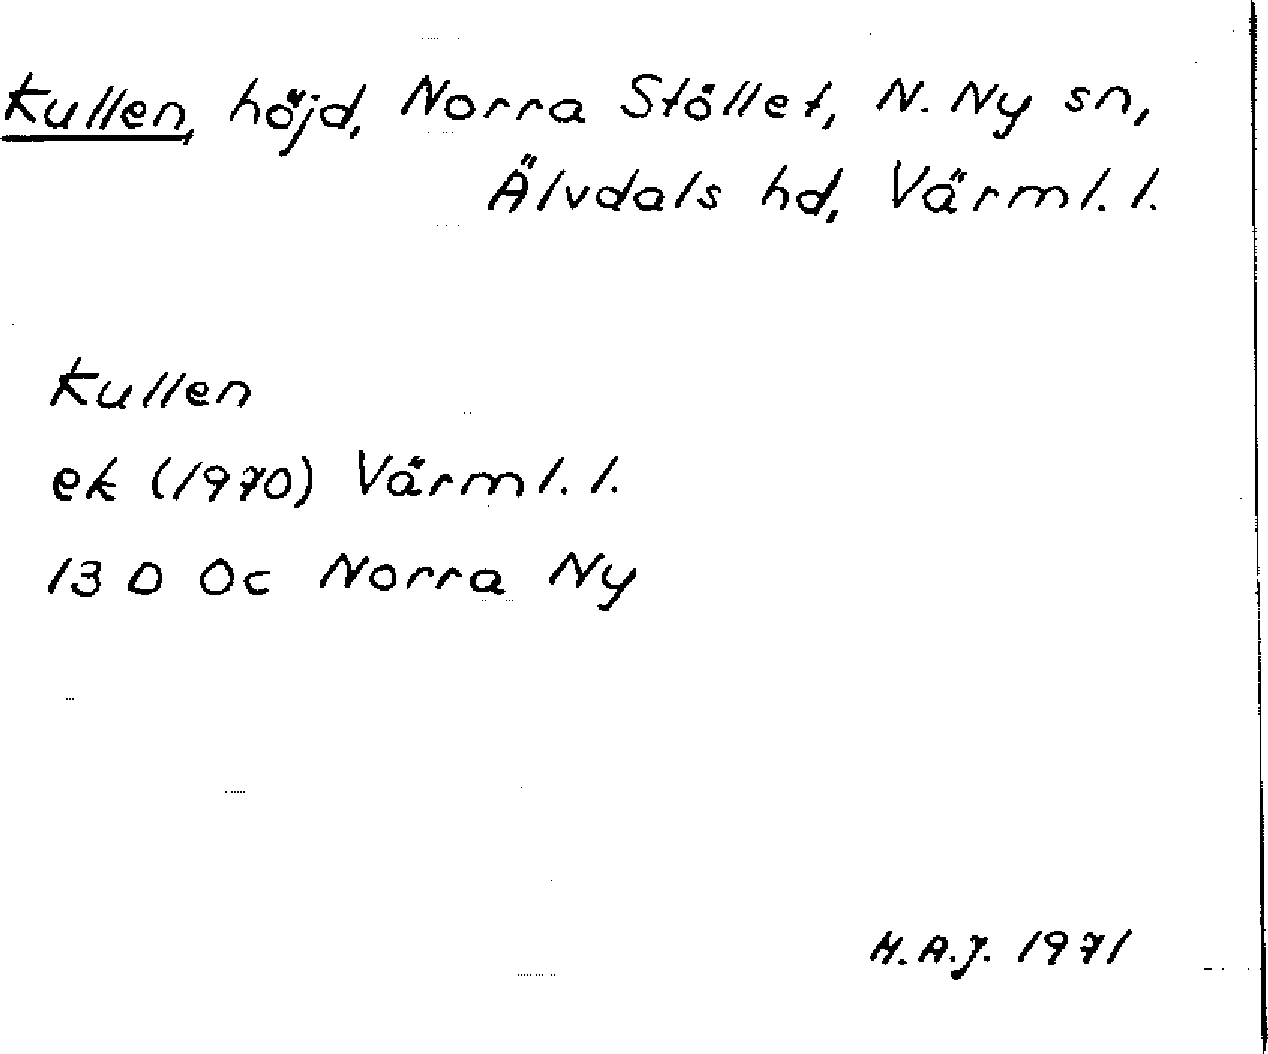 Kullen, höjd, Norra Stöllet, N. Ny sn,
Älvdals hd, Värml. l.
Kullen
ek (1970) Värml. l.
13 D Oc Norra Ny
H.A.J. 1971